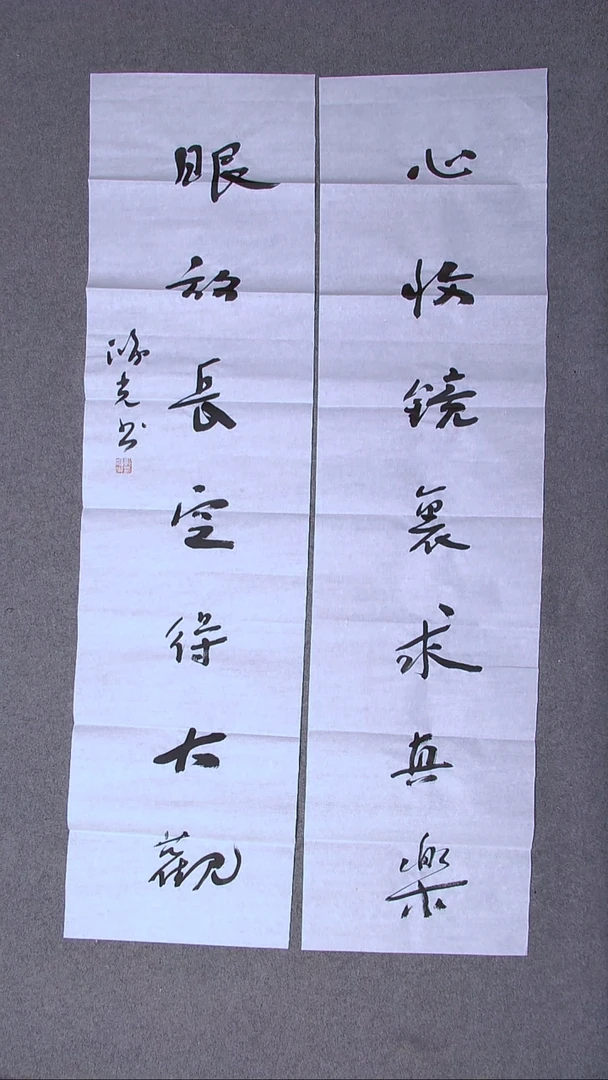 心收鏡裏求真樂
眼放長空得大觀
光书